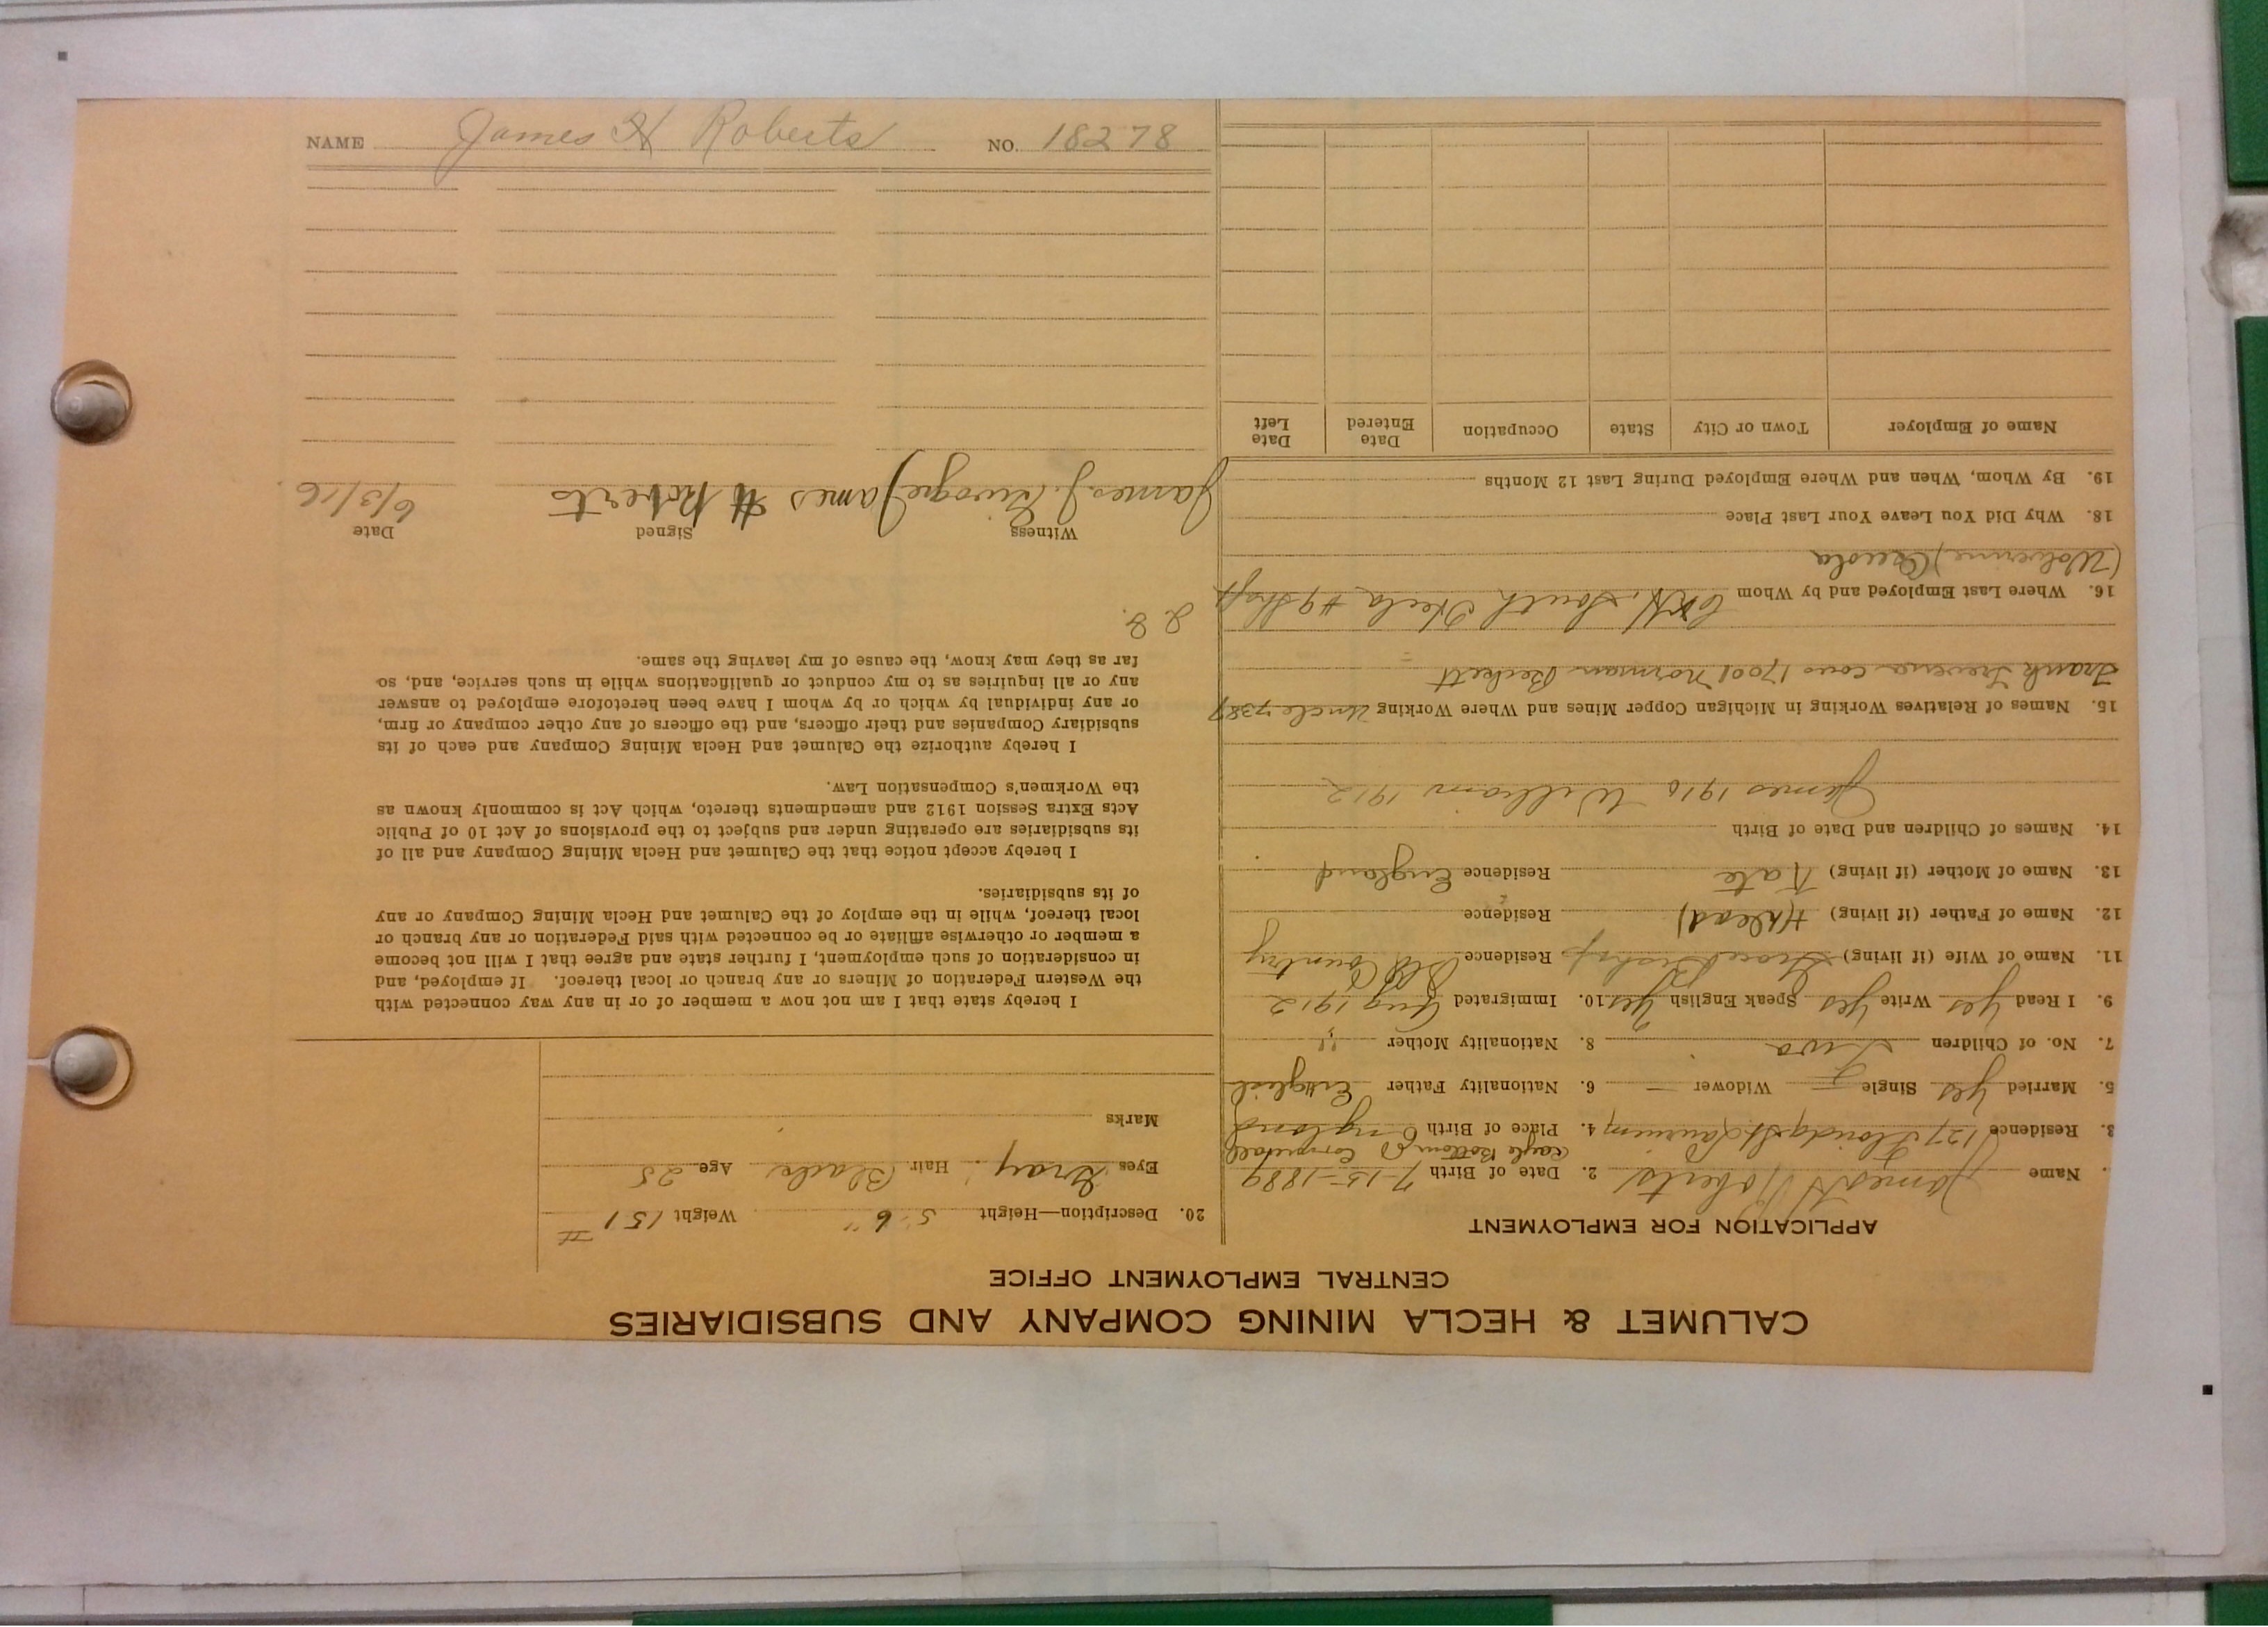 CALUMET & HECLA MINING COMPANY AND SUBSIDIARIES
CENTRAL EMPLOYMENT OFFICE
APPLICATION FOR EMPLOYMENT
Name James H Roberts 2. Date of Birth 7-15-1889
3. Residence 127 Florida St. Laurium 4. Place of Birth England
5. Married Yes Single — Widower — 6. Nationality Father English
7. No. of Children Two 8. Nationality Mother "
9. I Read Yes Write Yes Speak English Yes 10. Immigrated Aug 1912
11. Name of Wife (if living) Residence Old Country
12. Name of Father (if living) (dead) Residence
13. Name of Mother (if living) Kate Residence England
14. Names of Children and Date of Birth
James 1910 William 1912
15. Names of Relatives Working in Michigan Copper Mines and Where Working Uncle 7387
Frank cous 17001 Norman Beckett
16. Where Last Employed and by Whom C&H, South Hecla #9 Shaft
(Wolverine) Osceola
18. Why Did You Leave Your Last Place
19. By Whom, When and Where Employed During Last 12 Months
Name of Employer Town or City State Occupation Date Entered Date Left
20. Description—Height 5' 6" Weight 151 #
Eyes Gray Hair Black Age 25
Marks
I hereby state that I am not now a member of or in any way connected with
the Western Federation of Miners or any branch or local thereof. If employed, and
in consideration of such employment, I further state and agree that I will not become
a member or otherwise affiliate or be connected with said Federation or any branch or
local thereof, while in the employ of the Calumet and Hecla Mining Company or any
of its subsidiaries.
I hereby accept notice that the Calumet and Hecla Mining Company and all of
its subsidiaries are operating under and subject to the provisions of Act 10 of Public
Acts Extra Session 1912 and amendments thereto, which Act is commonly known as
the Workmen's Compensation Law.
I hereby authorize the Calumet and Hecla Mining Company and each of its
subsidiary Companies and their officers, and the officers of any other company or firm,
or any individual by which or by whom I have been heretofore employed to answer
any or all inquiries as to my conduct or qualifications while in such service, and, so
far as they may know, the cause of my leaving the same.
Witness Signed Date
James J. James H Roberts 6/3/16
NAME James H Roberts NO. 18278